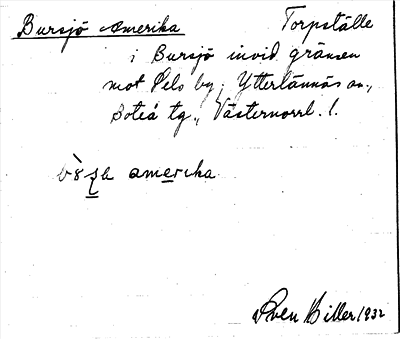 Bursjö Amerika Torpställe
i Bursjö invid gränsen
mot Pels by, Ytterlännäs sn.,
Boteå tg., Västernorrl. l.
amerika
Sven Hiller 1932